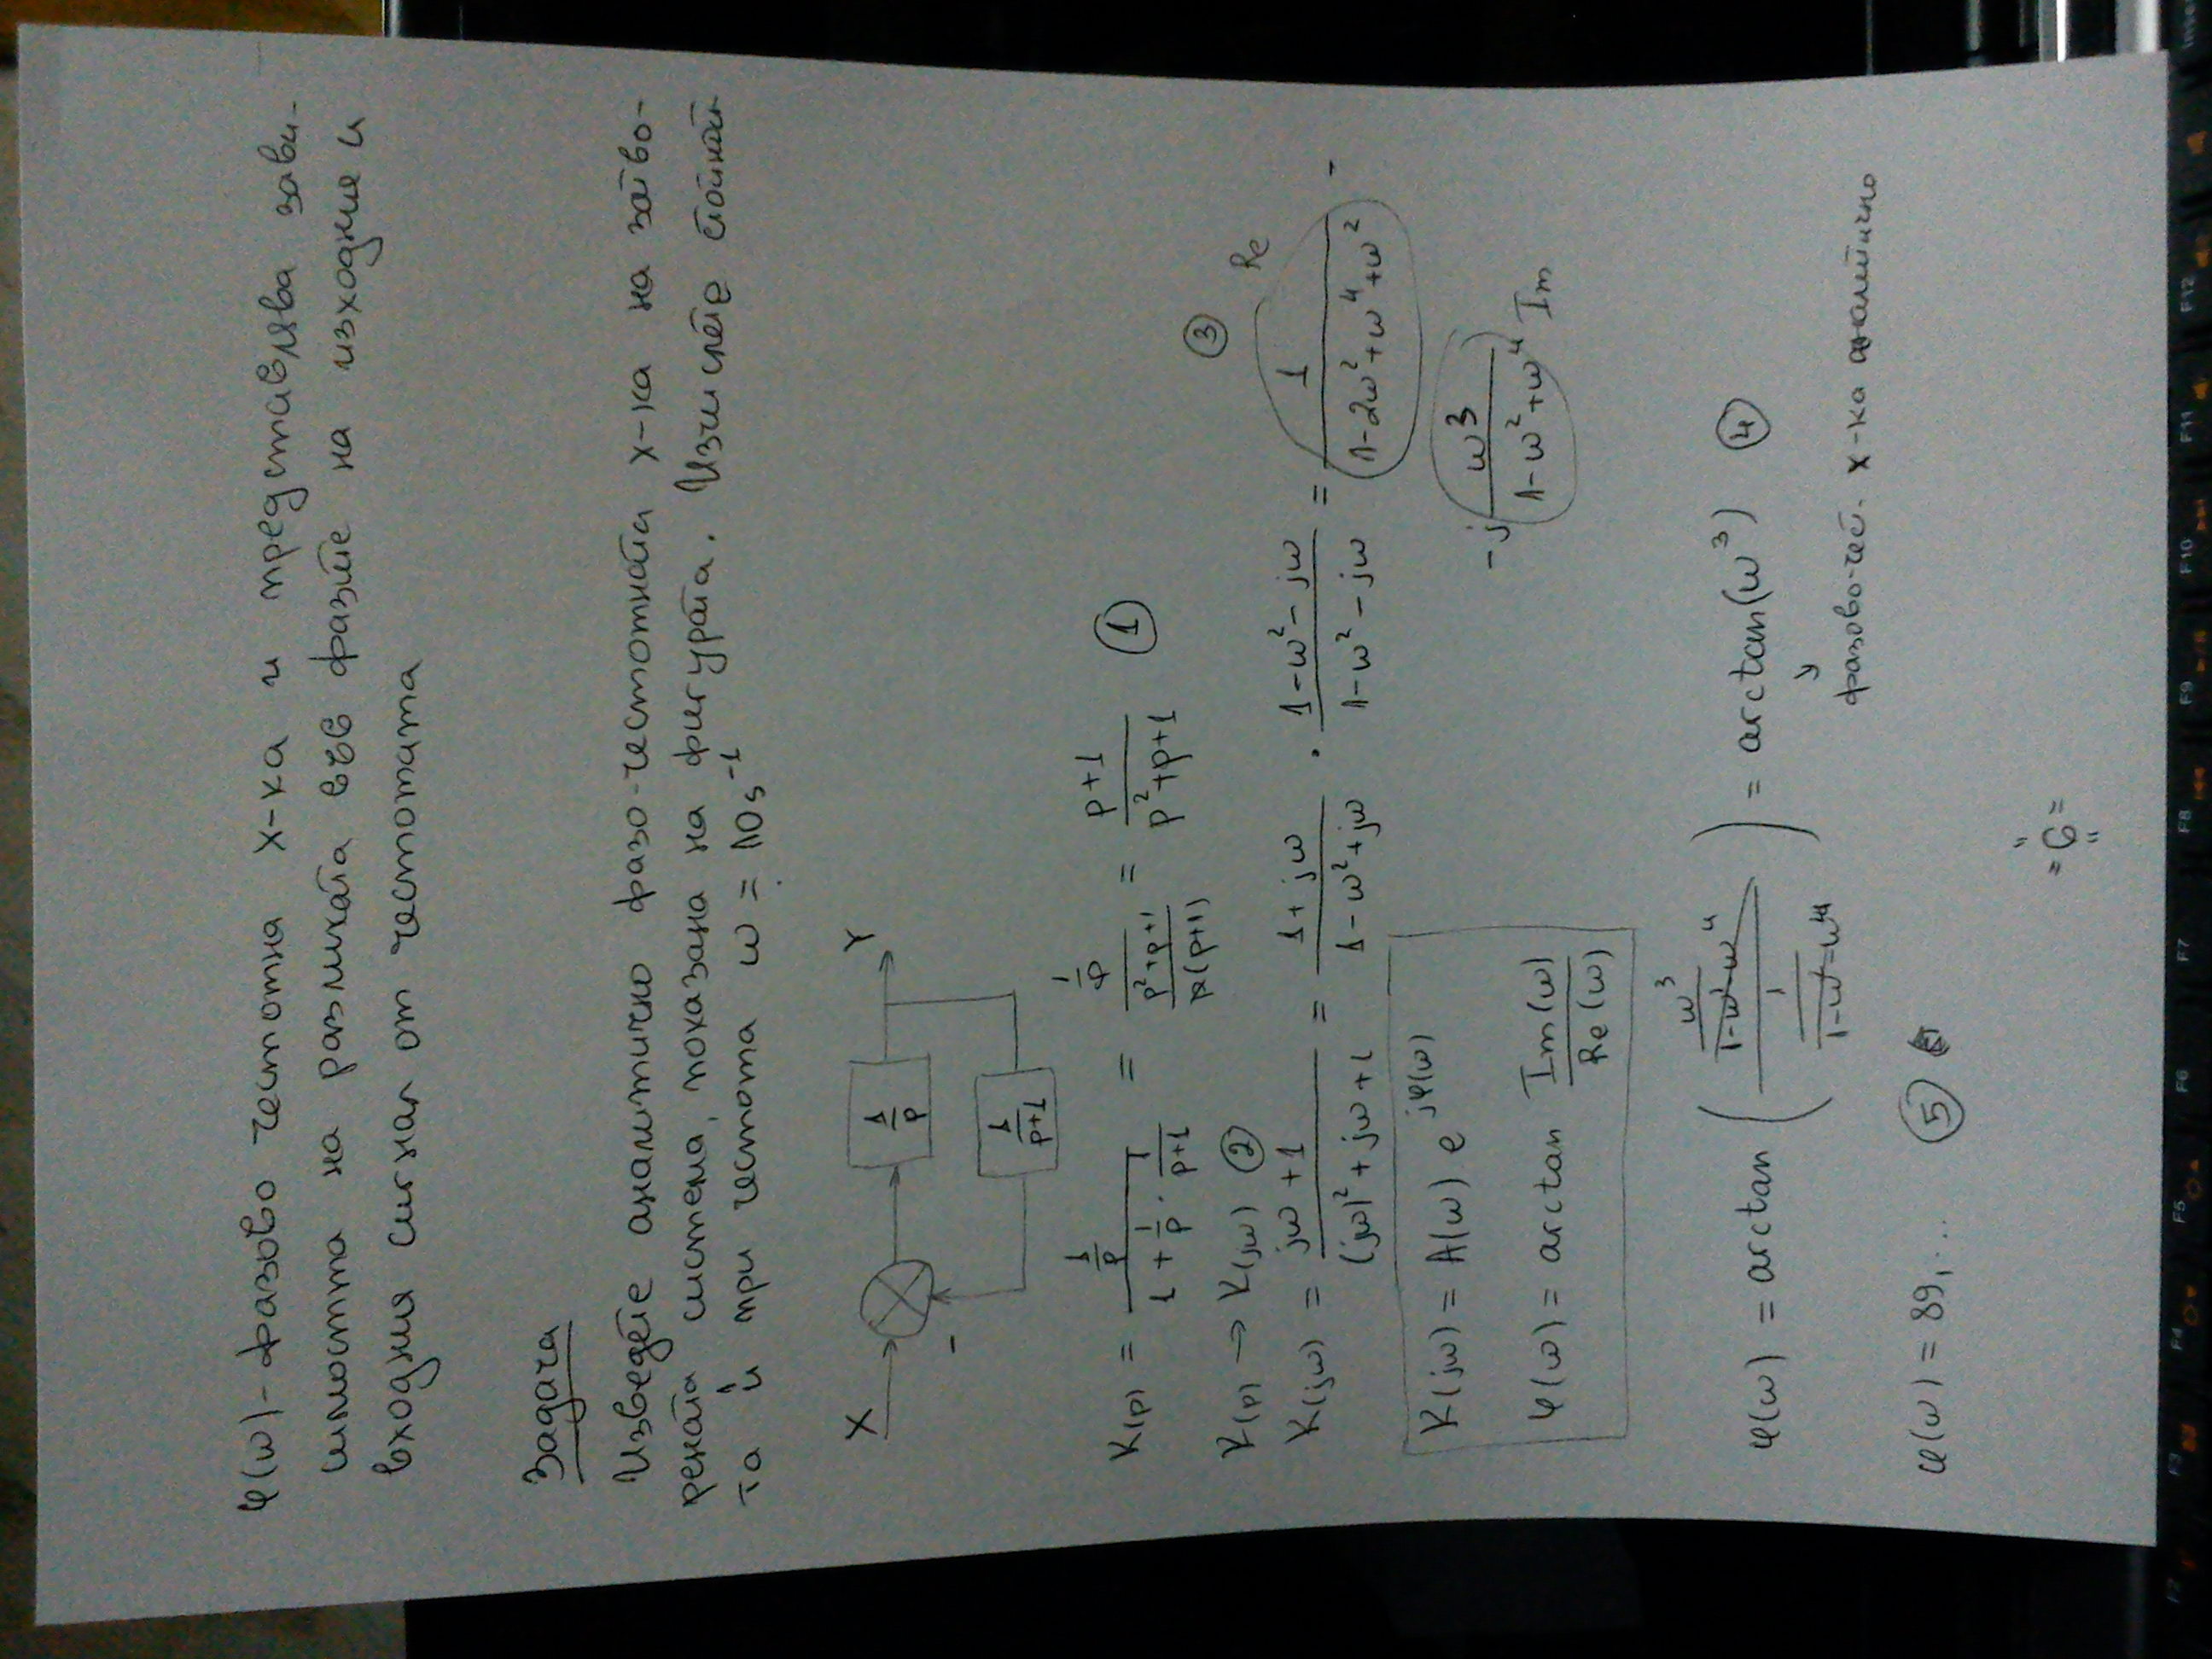 φ(ω) - фазово честотна х-ка и представлява зави-
симостта на разликата във фазите на изходния и
входния сигнал от честотата
Задача
Изведете аналитично фазо-честотната х-ка на затво-
рената система, показана на фигурата. Изчислете стойност
та ѝ при честота ω = 10s⁻¹
X 1/p Y
- 1/(p+1)
K(p) = (1/p)/(1 + 1/p · 1/(p+1)) = (1/p)/((p²+p+1)/(p(p+1))) = (p+1)/(p²+p+1) ①
K(p) → K(jω) ②
③ Re
K(jω) = (jω+1)/((jω)²+jω+1) = (1+jω)/(1-ω²+jω) · (1-ω²-jω)/(1-ω²-jω) = 1/(1-2ω²+ω⁴+ω²) -
-j ω³/(1-ω²+ω⁴) Im
K(jω) = A(ω) e^{jφ(ω)}
φ(ω) = arctan Im(ω)/Re(ω)
φ(ω) = arctan ((ω³/(1-ω²-ω⁴))/(1/(1-ω²-ω⁴))) = arctan(ω³) ④
фазово-чес. х-ка аналитично
φ(ω) = 89,... ⑤
= 6 =
F2 F3 F4 F5 F6 F7 F8 F9 F10 F11 F12 Insert